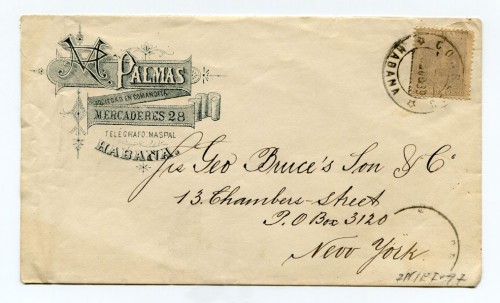 M
PALMAS
SOCIEDAD EN COMANDITA
MERCADERES 28
TELEGRAFO: MASPAL
HABANA.
HABANA
Jrs Geo Bruce's Son & Co
13. Chambers-Street
P.O Box 3120
New York.